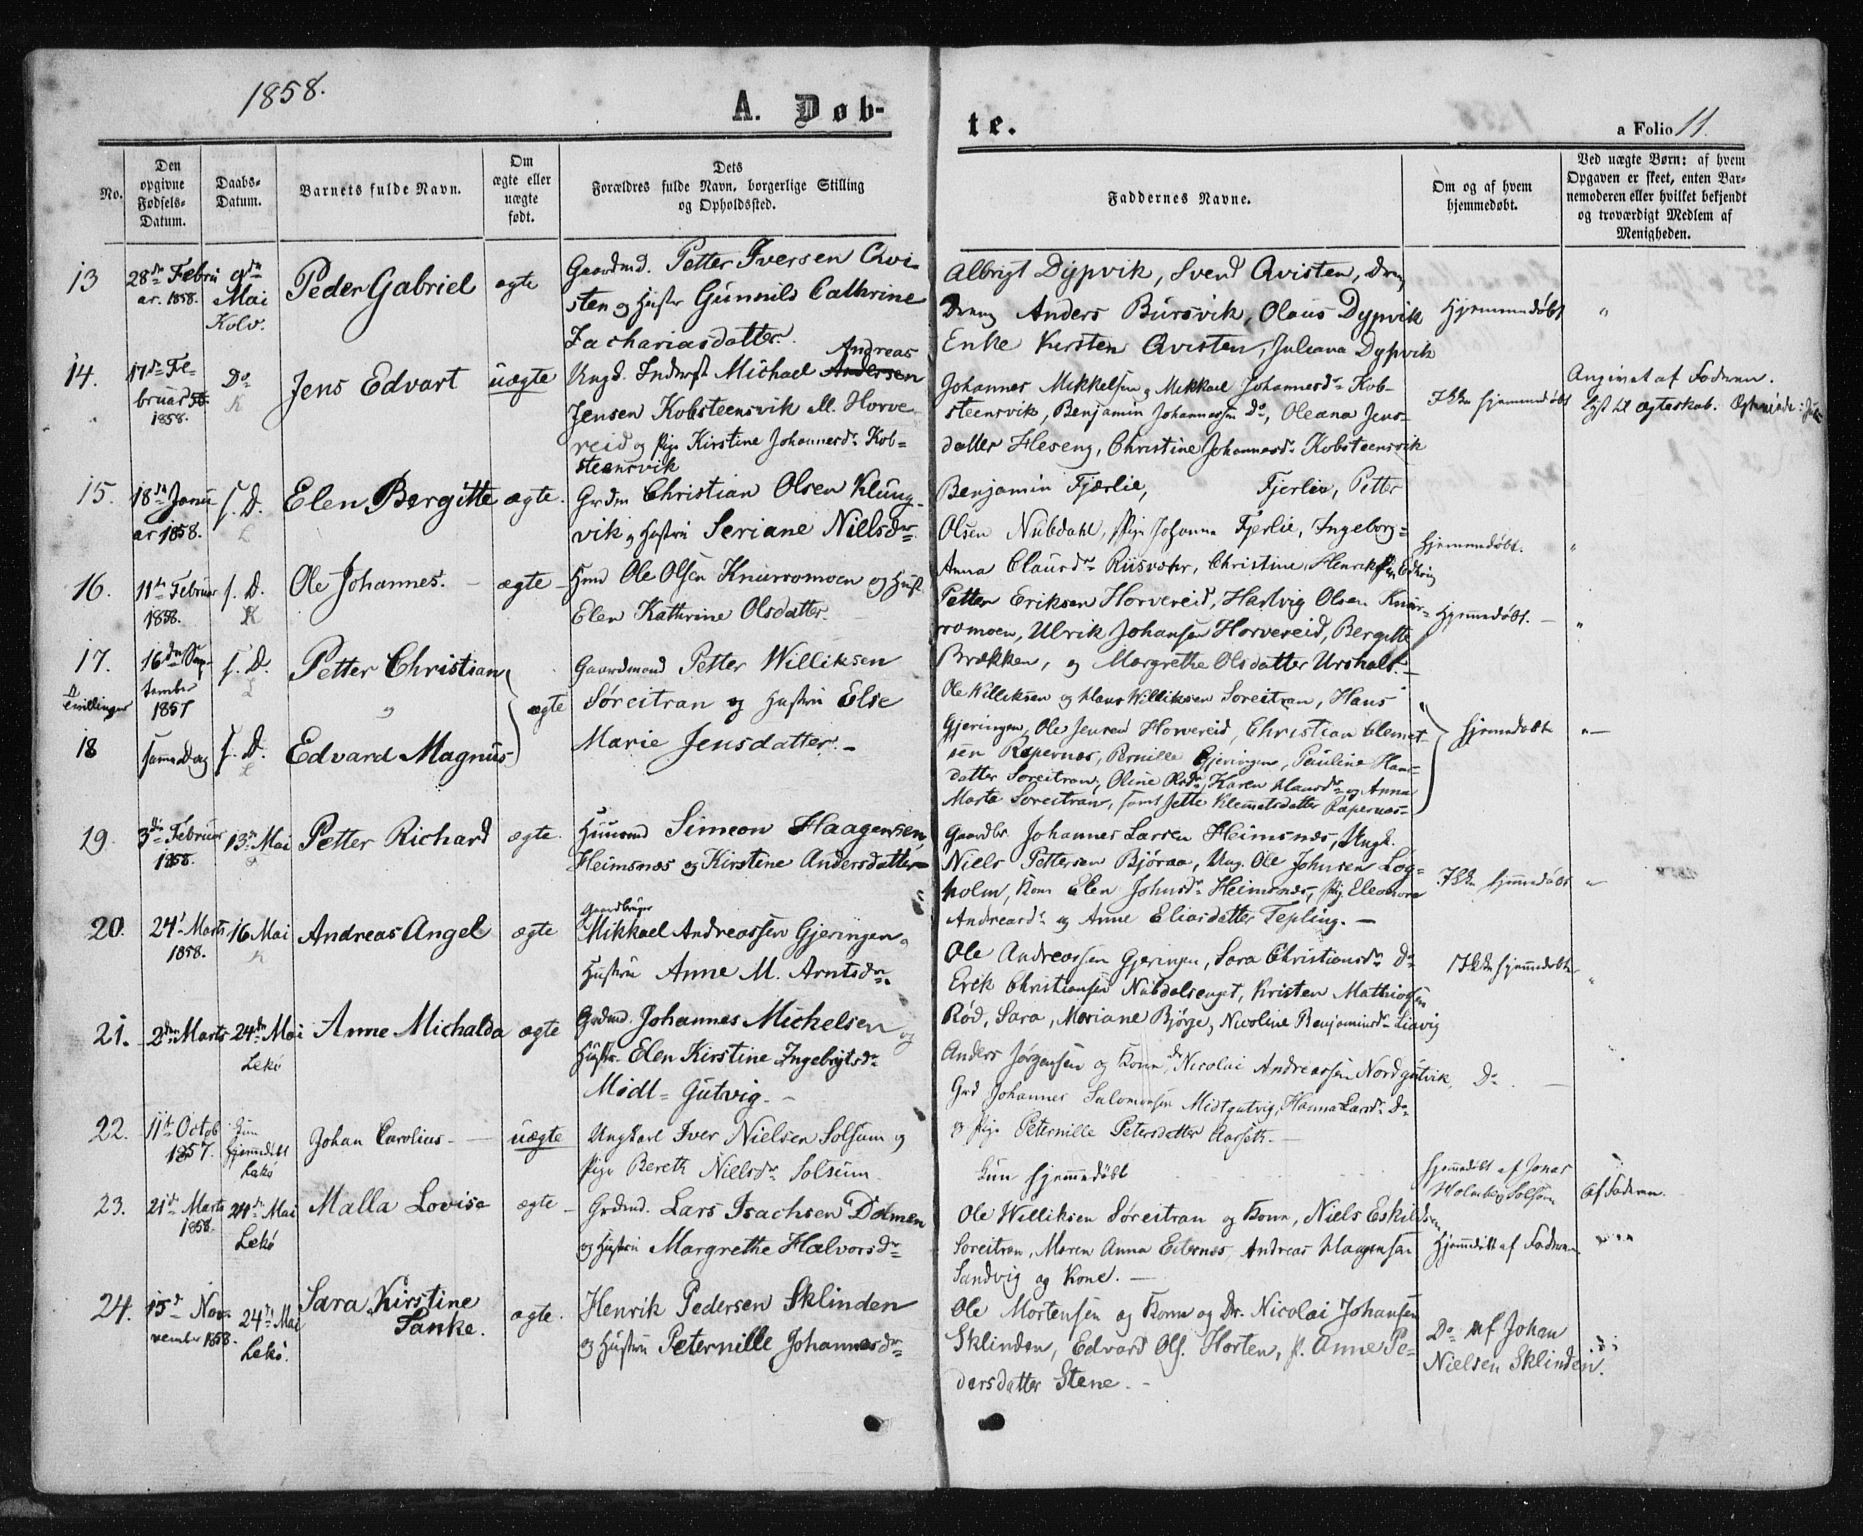 1858.
A. Døb-
te.
a Folio 11.
No.
Den opgivne Fødsels-Datum.
Daabs-Datum.
Barnets fulde Navn.
Om ægte eller uægte født.
Dets Forældres fulde Navn, borgerlige Stilling og Opholdssted.
Faddernes Navne.
Om og af hvem hjemmedøbt.
Ved uægte Børn: af hvem Opgaven er skeet, enten Barnemoderen eller hvilket bekjendt og troværdigt Medlem af Menigheden.
13 28de Febru 9de Peder Gabriel ægte Gaardmd. Petter Iversen Qvi-
ar. 1858. Mai sten og Hustr Gunnild Cathrine
Kolv. Zachariasdatter.
Albrigt Dypvik, Svend Qvisten,
Dreng Anders Bursvik, Olaus Dypvik Hjemmedøbt "
Enke Kirsten Qvisten, Juliana Dypvik
14. 17de Fe- Do Jens Edvart uægte Ungk. Inderst Michael Andersen Andreas
bruar K Jensen Kobsteensvik Horve-
1858. reid og Pige Kirstine Johannesdr Kob-
steensvik
Johannes Mikkelsen, Mikkael Johannesdr Kob-
steensvik, Benjamin Johannessen Do, Oleana Jens-
datter Heseng, Christine Johannesdr Kobsteensvik
Ikke hjemmedøbt
Angivet af Faderen.
Lyst til Ægteskab.
15. 18de Janu f. D. Elen Bergitte ægte. Grdm Christian Olsen Klung-
ar 1858. vik og Hustru Seriane Nielsdr
Benjamin Fjærlie, Fjerlie, Petter
Olsen Nubdahl, Pige Johanna Fjerlie, Ingeborg
Anna Clausdr Riisvær, Christine
hjemmedøbt. "
16. 11te Februar f. D. Ole Johannes. - ægte Hmd Ole Olsen Knurromoen og Hust
1858. K Elen Kathrine Olsdatter.
Petter Eriksen Horvereid, Hartvig Olsen Knur-
romoen, Ulrik Johansen Horvereid, Bergitte
Brækken, og Margrethe Olsdatter Urshalt.
Hjemmedøbt. "
17. 16de Sep- f. D. Petter Christian Gaardmand Petter Williksen
Tvillinger tember 1857 og ægte Søreitran og Hustru Else
18 samme Dag f. D. Edvard Magnus Marie Jensdatter.-
Ole Williksen og Hans Williksen Soreitran, Hans
Gjeringen, Ole Jensen Horvereid, Christian Clemet-
sen Rapernæs, Pernille Gjeringen, Pauline Hans-
datter Soreitran, Oline Olsdr, Karen Hansdr og Anna
Marta Soreitran, samt Jette Klemetsdatter Rapernæs-
Hjemmedøbte "-
19. 3die Februar 13de Mai Petter Richard ægte. Huusmd Simeon Haagensen,
1858. Heimsnæs og Kirstine Andersdatter
Gaardbr. Johannes Larsen Heimsnæs, Ungk.
Niels Pettersen Bjøraa, Ung. Ole Johnsen Løg-
holm, Kone Elen Johnsdr Heimsnæs, Pig Eleonora
Andreasdr og Anne Eliasdatter Tepling. -
Ikke hjemmedøbt "
20. 24de Marts 16 Mai Andreas Angel ægte Gaardbruger
1858. Mikkael Andreassen Gjeringen og
Hustru Anne M. Arntsdr.
Ole Andreassen Gjeringen, Sara Christiansdr Do
Erik Christiansen Nubdalsenget, Kirsten Mathiassen
Rød, Sara, Mariane Bjørge, Nicoline Benjaminsdr Liavig
Ikke hjemmedøbt "
21. 2den Marts 24de Mai Anne Michalda ægte Grdmd. Johannes Mickelsen og
Lekø Hustr. Elen Kirstine Ingebrigtsdr
Midt= Gutvig. -
Anders Jørgensen og Kone, Nicolai Andreassen Nordgutvik,
Grd Johannes Salomonsen Midtgutvig, Hanna Larsdr Do
og Pige Peternille Petersdatter Aarseth. -
Do
22. 11te Octob Kun Johan Carolius - uægte Ungkarl Iver Nielsen Solsum og
1857. hjemmedøbt Lekø Pige Bereth Nielsdr Solsum.
Kun hjemmedøbt
Hjemmedøbt af Jonas
Holmberg Solsum Af Faderen.
23. 21de Marts 24de Mai Malla Lovise ægte Grdmd. Lars Isachsen Dolmen
1858. Lekø og Hustru Margrethe Halvorsdr
Ole Williksen Søreitran og Kone, Niels Eskildsen
Soreitran, Maren Anna Eiternæs, Andreas Haagensen
Sandvig og Kone. -
Hjemmedøbt af Faderen
24. 15de No- 24de Mai Sara Kirstine ægte. Henrik Pedersen Sklinden
vember 1858. Lekø. Tanke. og Hustru Peternille Johannesdr
Ole Mortensen og Kone og Dr. Nicolai Johansen
Sklinden, Edvard Ols. Horten, P. Anne Pe-
dersdatter Stene. -
Do af Johan
Nielsen Sklinden.